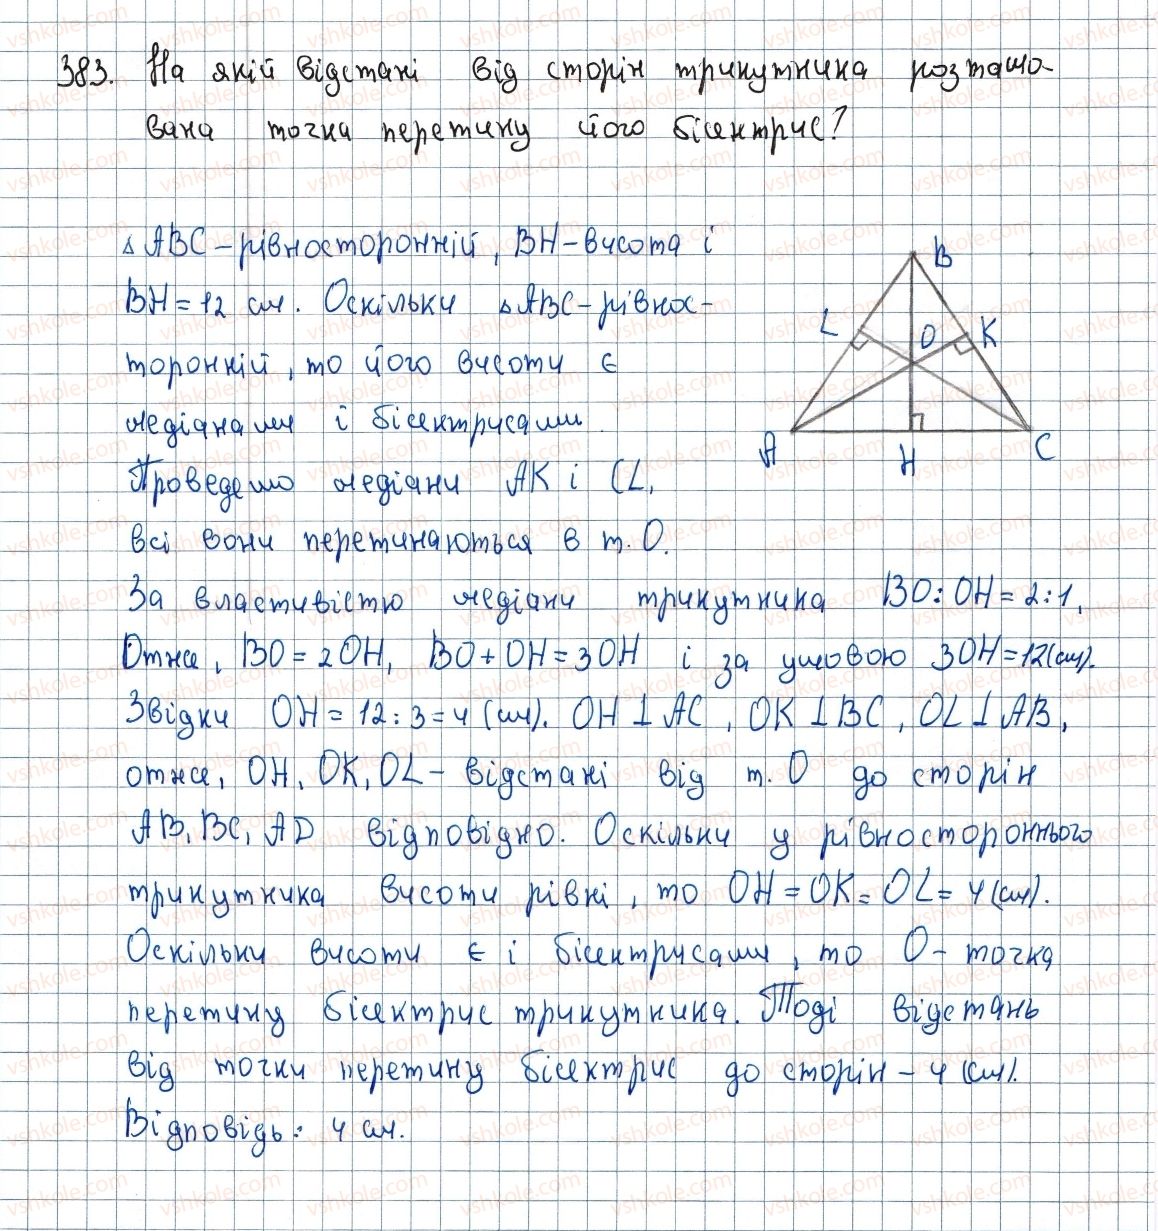 383. На якій відстані від сторін трикутника розташо-
вана точка перетину його бісектрис?
△ABC – рівносторонній, BH – висота і
BH = 12 см. Оскільки △ABC – рівнос-
торонній, то його висоти є
медіанами і бісектрисами.
Проведемо медіани AK і CL,
всі вони перетинаються в т. O.
За властивістю медіани трикутника BO : OH = 2 : 1.
Отже, BO = 2OH, BO + OH = 3OH і за умовою 3OH = 12 (см).
Звідки OH = 12 : 3 = 4 (см). OH ⊥ AC, OK ⊥ BC, OL ⊥ AB,
отже, OH, OK, OL – відстані від т. O до сторін
AB, BC, AD відповідно. Оскільки у рівностороннього
трикутника висоти рівні, то OH = OK = OL = 4 (см).
Оскільки висоти є і бісектрисами, то O – точка
перетину бісектрис трикутника. Тоді відстань
від точки перетину бісектрис до сторін – 4 (см).
Відповідь: 4 см.
B
L
O
K
A
H
C
vshkole.com